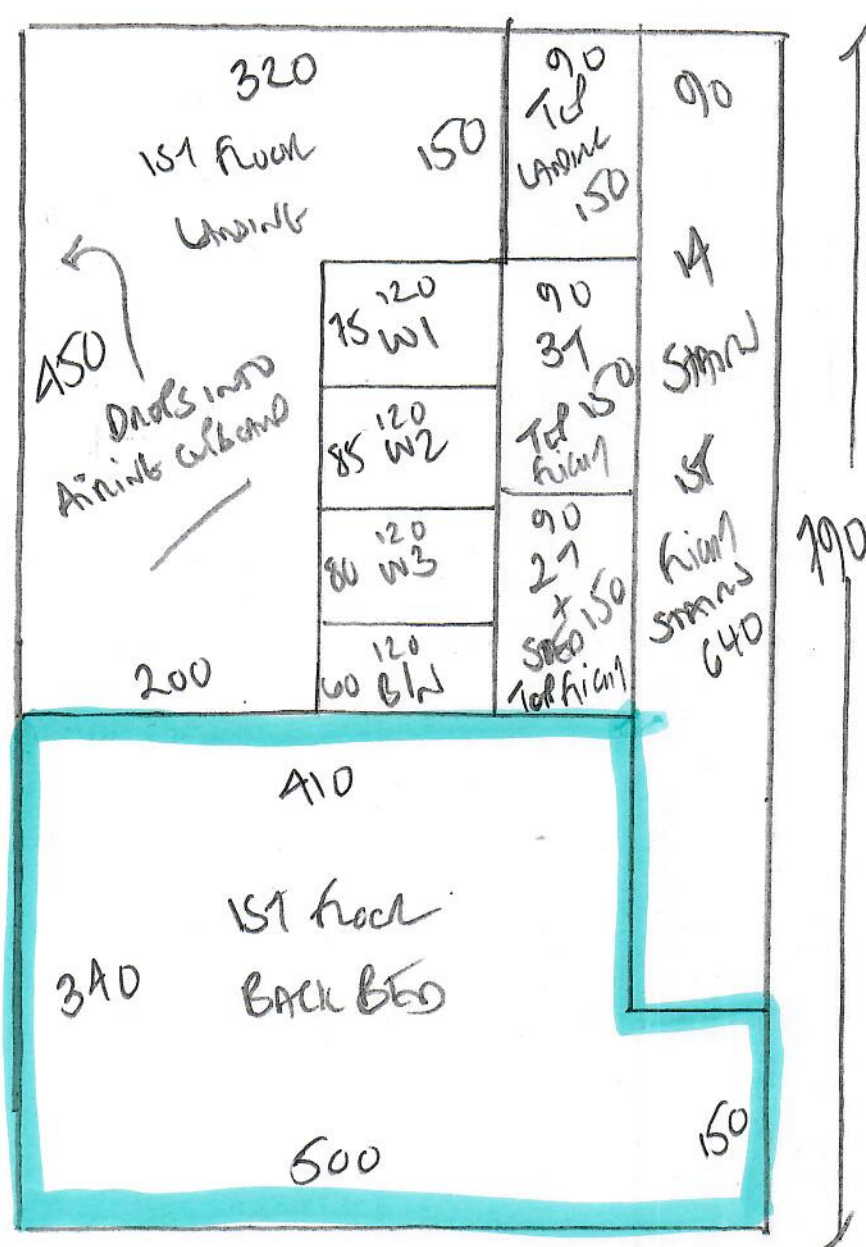 320
1ST FLOOR
LANDING
150
90
TOP
LANDING
150
90
14
STAIRS
1ST
FLIGHT
STAIRS
640
450
DROPS INTO
AIRING CUPBOARD
200
120
75 W1
120
85 W2
120
80 W3
120
60 B/N
90
3T
TOP 150
FLIGHT
90
2T
+
150
TOP FLIGHT
790
410
1ST FLOOR
BACK BED
340
500
150